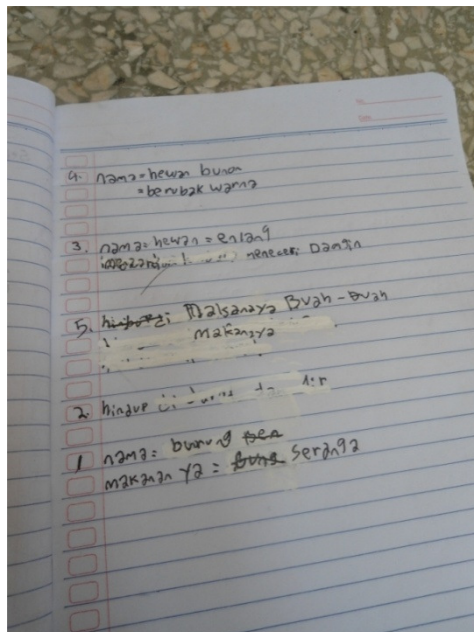 4. nama = hewan bunon
= berubak warna
3. nama = hewan = enlang
menecari Daniin
5. Malsanaya Buah - Buah
makanaya
2. hindup
1 nama = burung
makanan ya = seranga